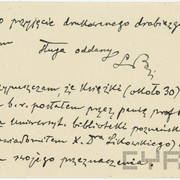 o przyjęcie drukowanego drobiazgu
Sługa oddany
ypuszczam, że Książki (około 30)
b.r. posłałem przez panią prof
uniwersyt. biblioteki poznańskiej
wiadomiłem X. Dra Likowskiego
swojego przeznaczenia.